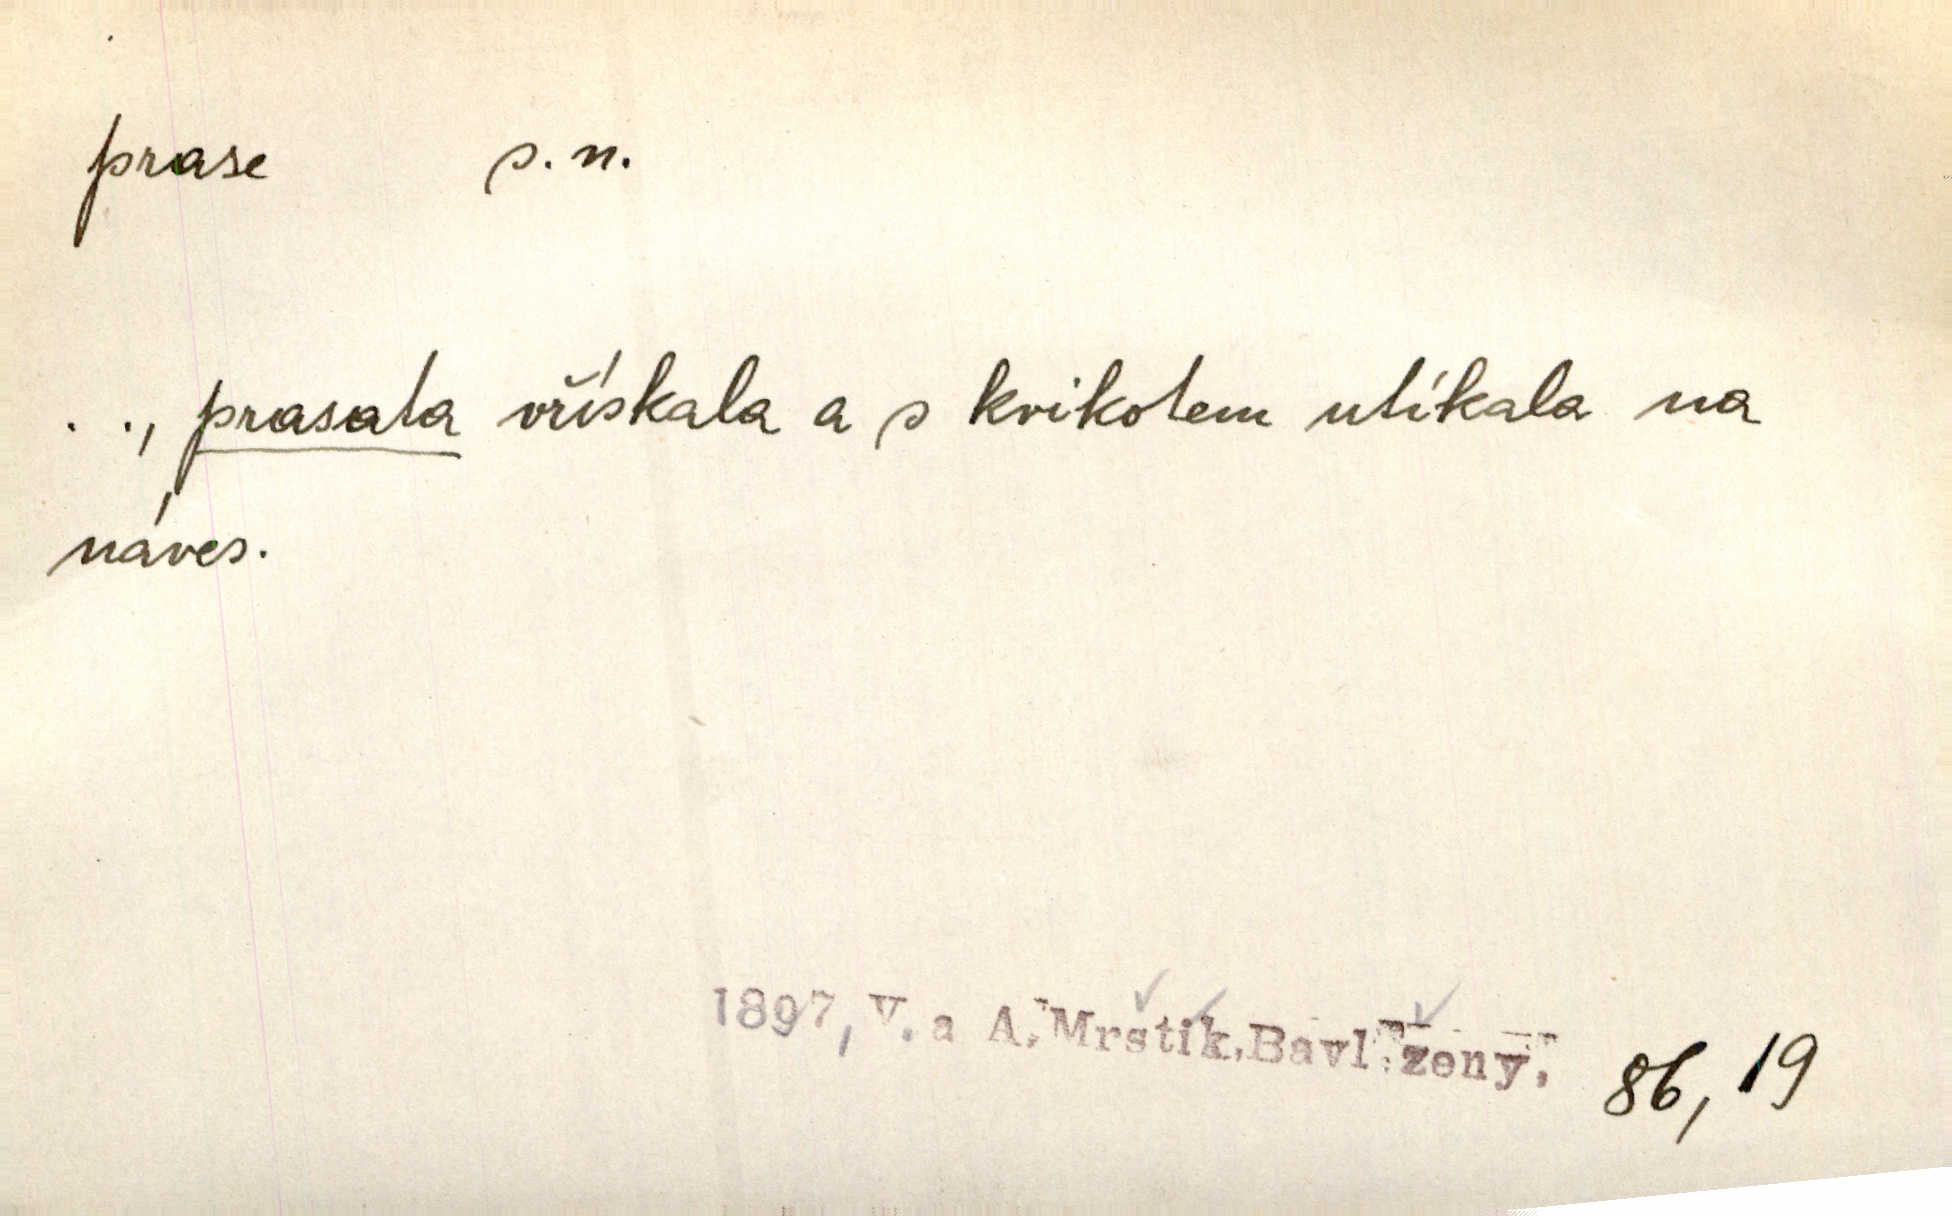 prase s. n.
. ., prasata vřískala a s kvikotem utíkala na
náves.
1897, V. a A. Mrštík, Bavl. ženy, 86, 19